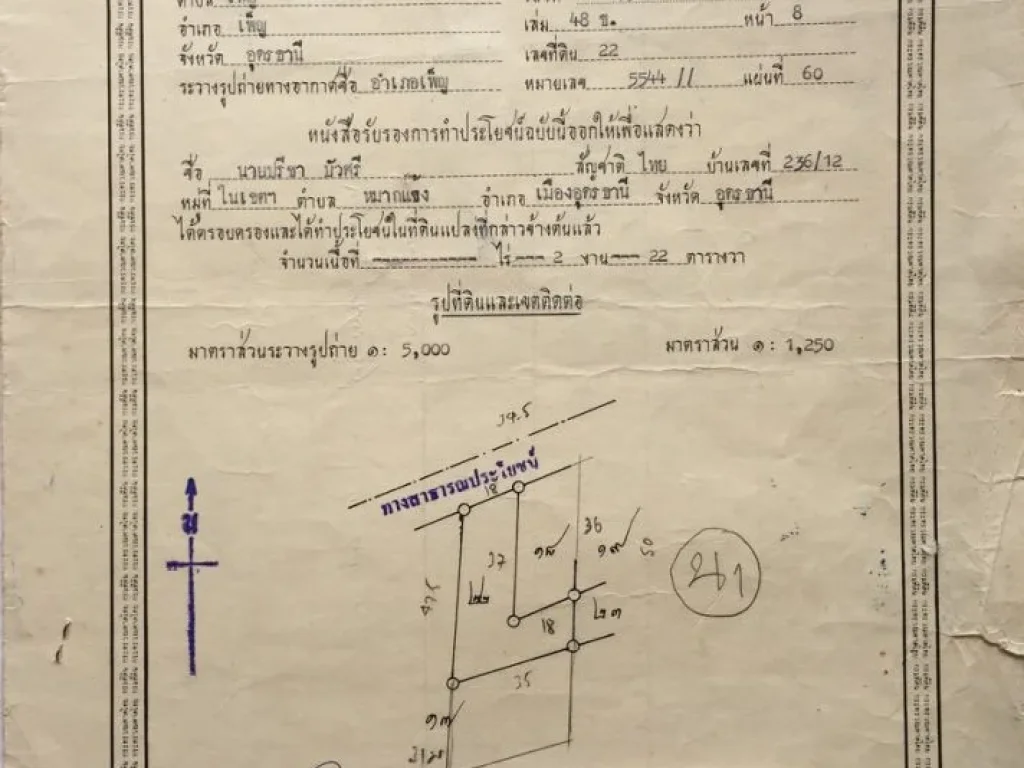 อำเภอ เพ็ญ เล่ม 48 ข. หน้า 8
จังหวัด อุดรธานี เลขที่ดิน 22
ระวางรูปถ่ายทางอากาศชื่อ อำเภอเพ็ญ หมายเลข 5544 II แผ่นที่ 60
หนังสือรับรองการทำประโยชน์ฉบับนี้ออกให้เพื่อแสดงว่า
ชื่อ นายปรีชา บัวศรี สัญชาติ ไทย บ้านเลขที่ 236/12
หมู่ที่ ในเขตฯ ตำบล หมากแข้ง อำเภอ เมืองอุดรธานี จังหวัด อุดรธานี
ได้ครอบครองและได้ทำประโยชน์ในที่ดินแปลงที่กล่าวข้างต้นแล้ว
จำนวนเนื้อที่ ----------- ไร่ --- 2 งาน --- 22 ตารางวา
รูปที่ดินและเขตติดต่อ
มาตราส่วนระวางรูปถ่าย ๑ : 5,000 มาตราส่วน ๑ : 1,250
ทางสาธารณประโยชน์
18
น
37 ๑๘ 36 ๑๙
๒๒
18 ๒๓
35
๑๓